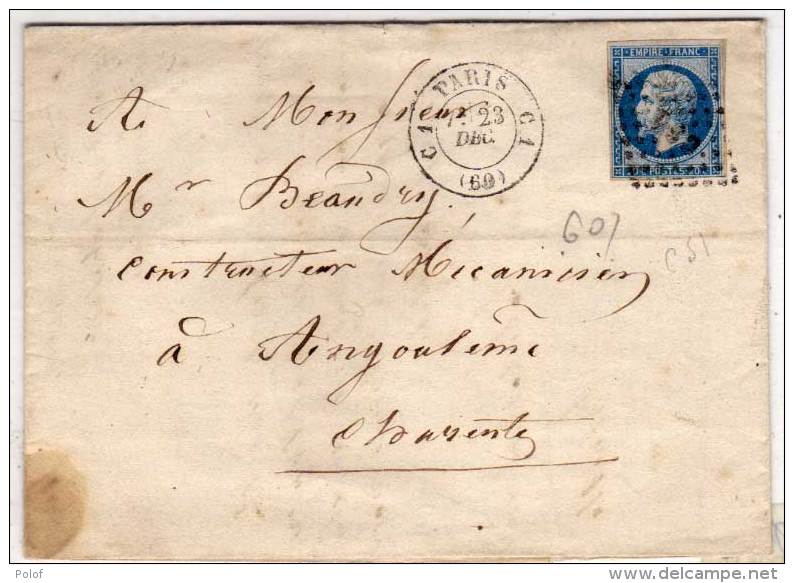 A Monsieur
Mr Beaudry,
Constructeur Mécanicien
à Angoulême
Charente
PARIS
C.1 C.1
23
DEC.
(60)
EMPIRE FRANC
POSTES
607
Polof
delcampe.net